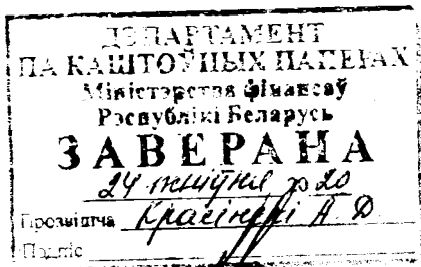 ДЭПАРТАМЕНТ
ПА КАШТОЎНЫХ ПАПЕРАХ
Міністэрства фінансаў
Рэспублікі Беларусь
ЗАВЕРАНА
24 20
Прозвішча А. Д.
Подпіс